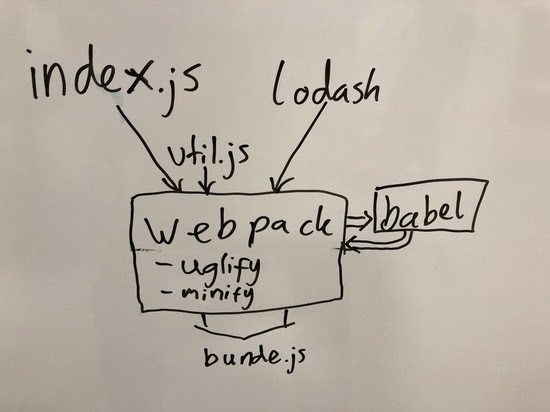 index.js
lodash
util.js
webpack
babel
- uglify
- minify
bunde.js